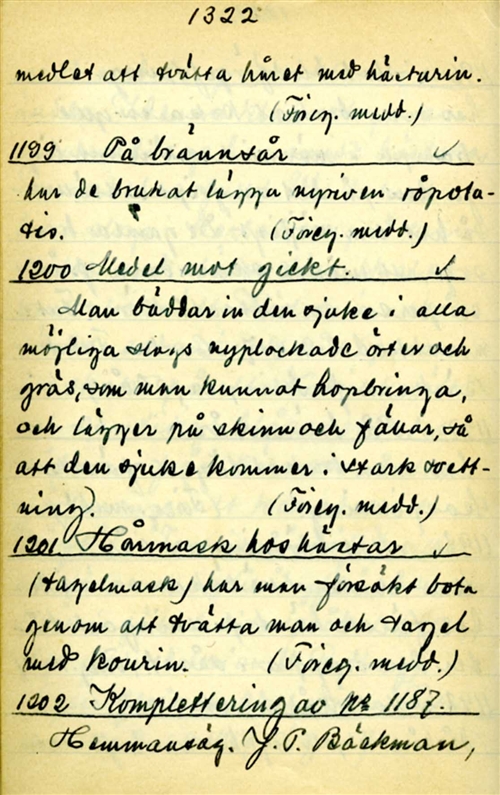 1322
medlet att tvätta håret med hästurin.
(Föreg. medd.)
1199 På brännsår ✓
har de brukat lägga nyriven råpota-
tis. (Föreg. medd.)
1200 Medel mot gickt. ✓
Man bäddar in den sjuke i alla
möjliga slags nyplockade örter och
gräs, som man kunnat hopbringa,
och lägger på skinn och fällar, så
att den sjuke kommer i stark svett-
ning. (Föreg. medd.)
1201 Hårmask hos hästar ✓
(tagelmask) har man försökt bota
genom att tvätta man och tagel
med kourin. (Föreg. medd.)
1202 Komplettering av nr 1187.
Hemmansäg. J. P. Bäckman,